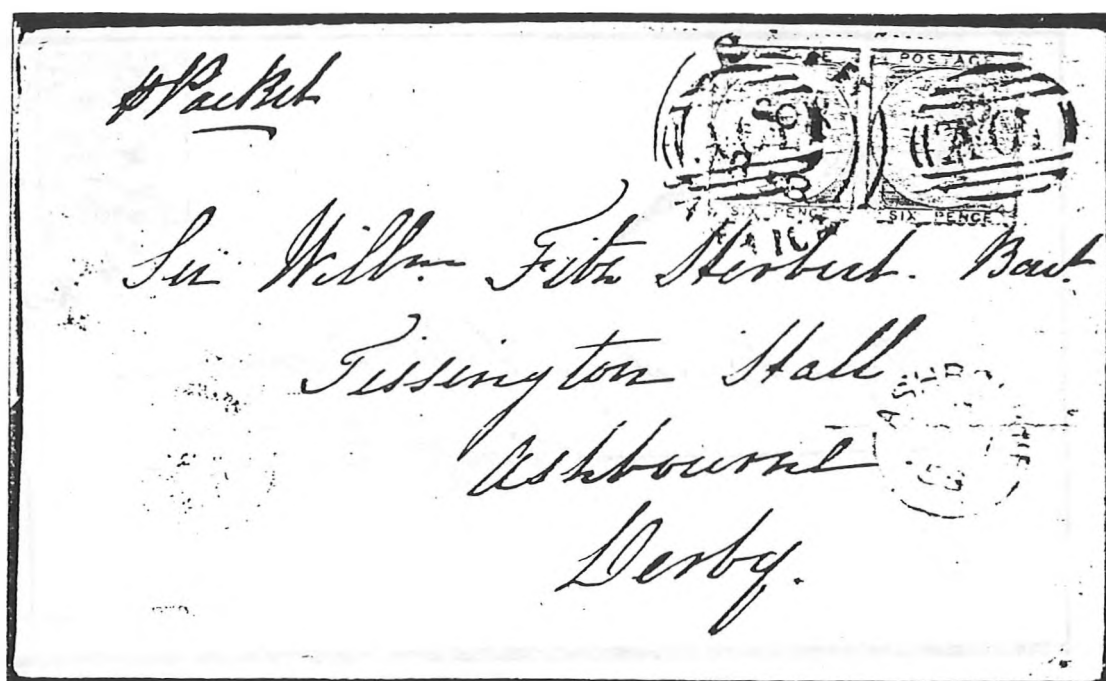 p Packet
POSTAGE
SIX PENCE
SIX PENCE
Sir Willm Fitz Herbert. Bart.
Tissington Hall
Ashbourne
Derby.